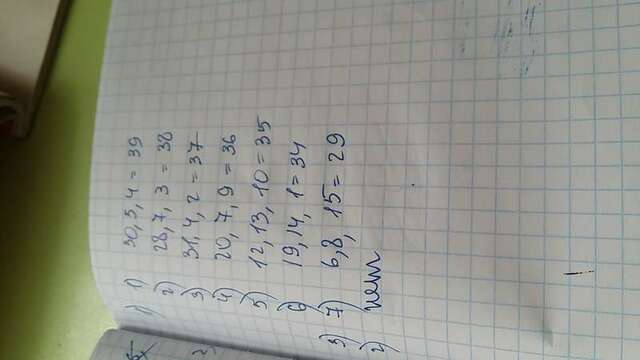 1) 1) 30, 5, 4 = 39
2) 28, 7, 3 = 38
3) 31, 4, 2 = 37
4) 20, 7, 9 = 36
5) 12, 13, 10 = 35
6) 19, 14, 1 = 34
3) 7) 6, 8, 15 = 29
2) нет